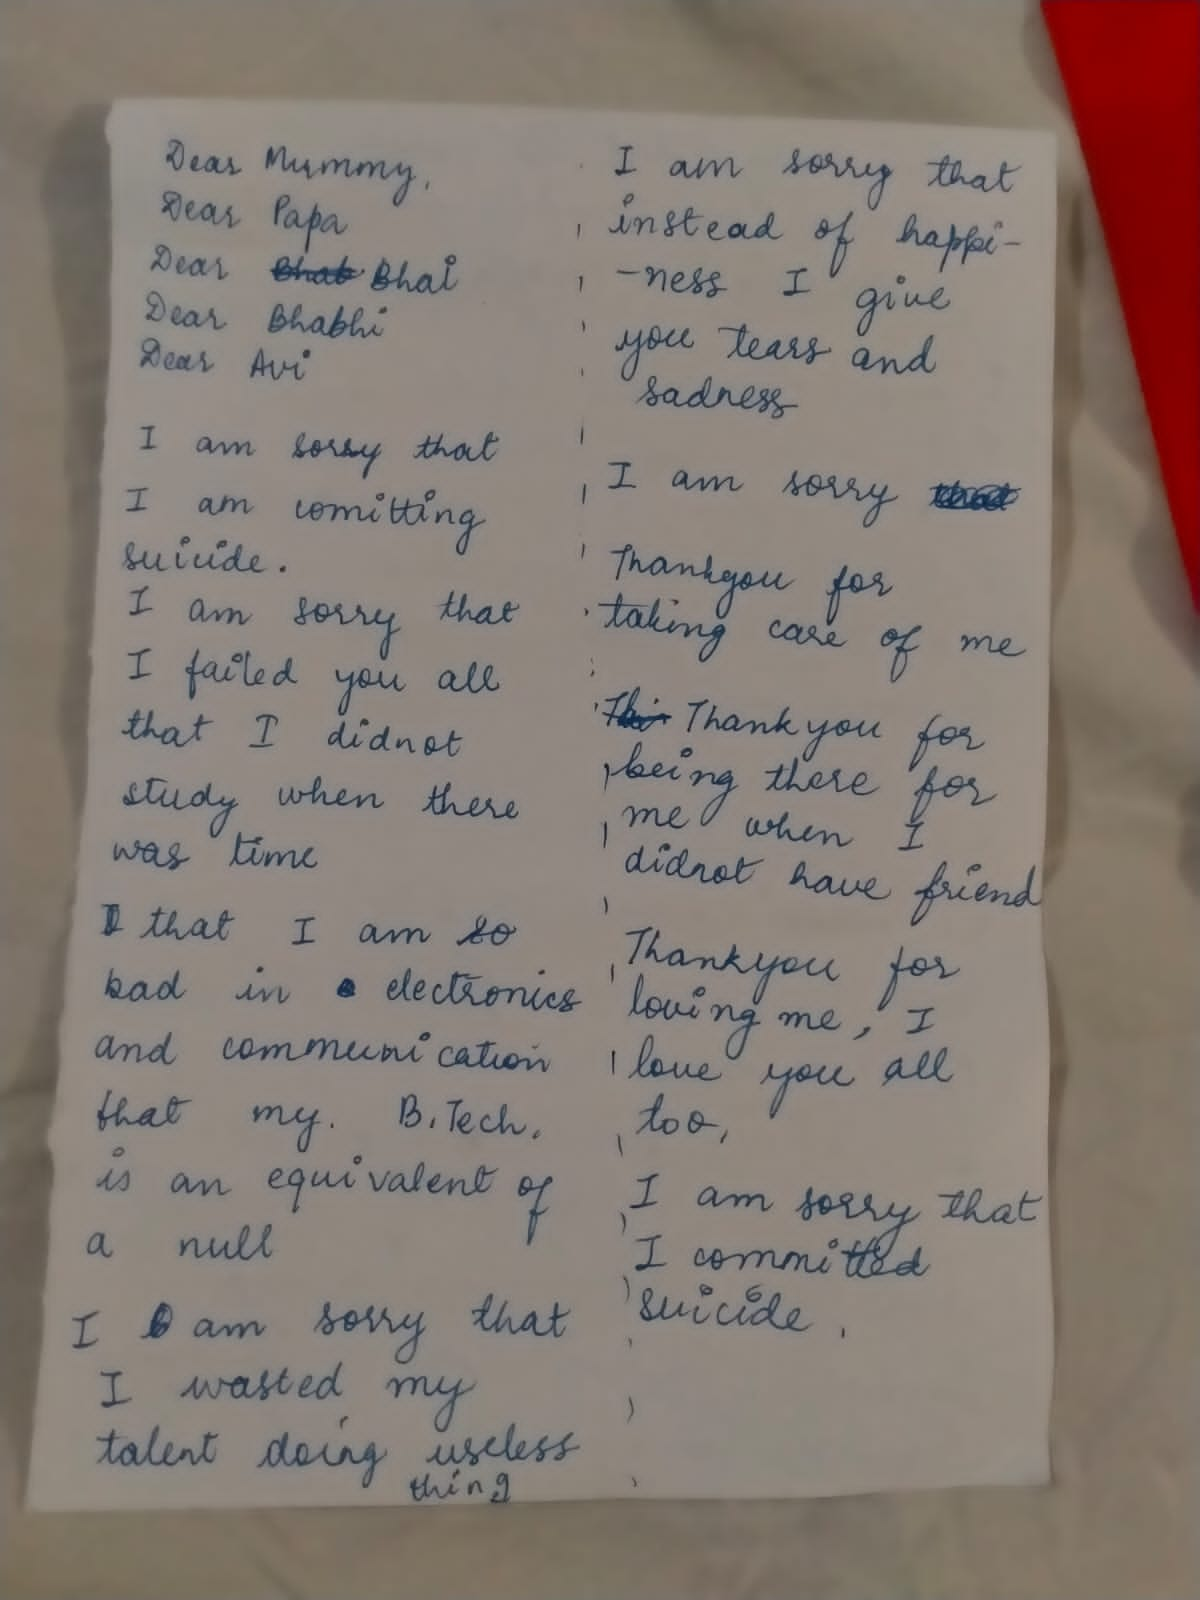 Dear Mummy,
Dear Papa
Dear Bhab Bhai
Dear Bhabhi
Dear Avi
I am sorry that
I am comitting
suicide.
I am sorry that
I failed you all
that I didnot
study when there
was time
I that I am so
bad in electronics
and communication
that my. B.Tech.
is an equivalent of
a null
I am sorry that
I wasted my
talent doing useless
thing
I am sorry that
instead of happi-
-ness I give
you tears and
sadness
I am sorry that
Thankyou for
taking care of me
Thankyou for
being there for
me when I
didnot have friend
Thankyou for
loving me, I
love you all
too,
I am sorry that
I committed
suicide.